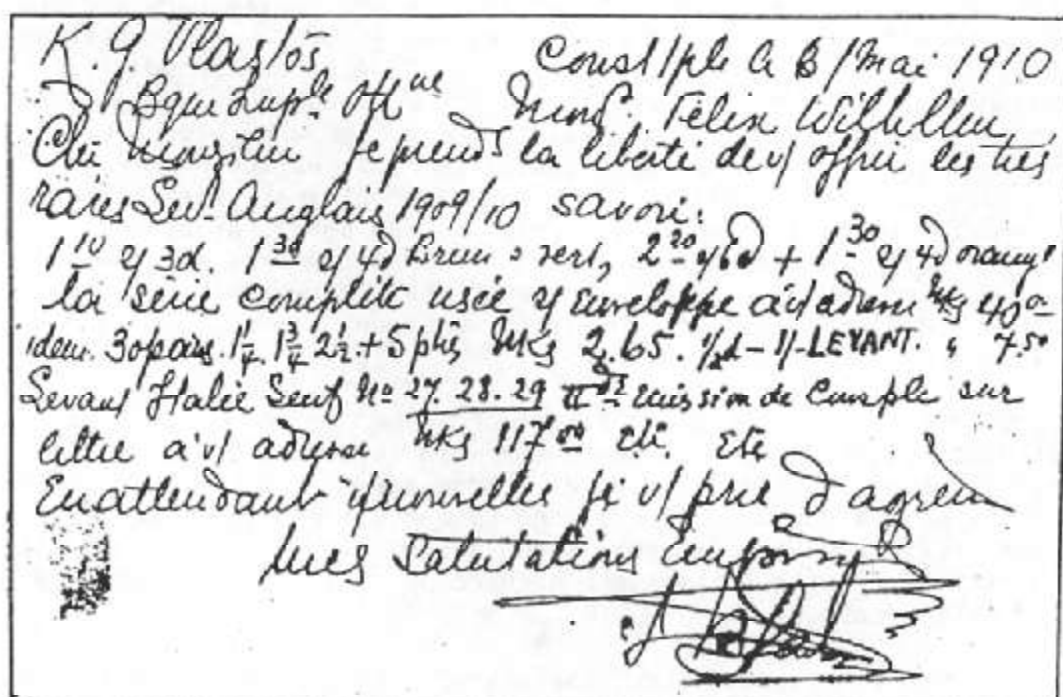 K. G. Vlastós Const/ple le 3/mai 1910
Bque Imple Offne Monsr. Felix Wilhelm
Cher Monsieur Je prends la liberté de v/ offrir les très
rares Levt Anglais 1909/10 savoir:
1 10 s/ 3d. 1 30 s/ 4d brun & vert, 2 20 s/ 6d + 1 30 s/ 4d orange
la série complète usée s/ Enveloppe à v/ adresse Mks 40-
idem. 30 paras. 1¼. 1¾ 2½. + 5 ptrs Mks 2.65. ½d - 1/- LEVANT. " 7.50
Levant Italie Neuf No 27. 28. 29 II de Emission de Cnsple sur
lettre à v/ adresse Mks 117.00 Etc. Etc
En attendant nouvelles je v/ prie d'agréer
mes salutations